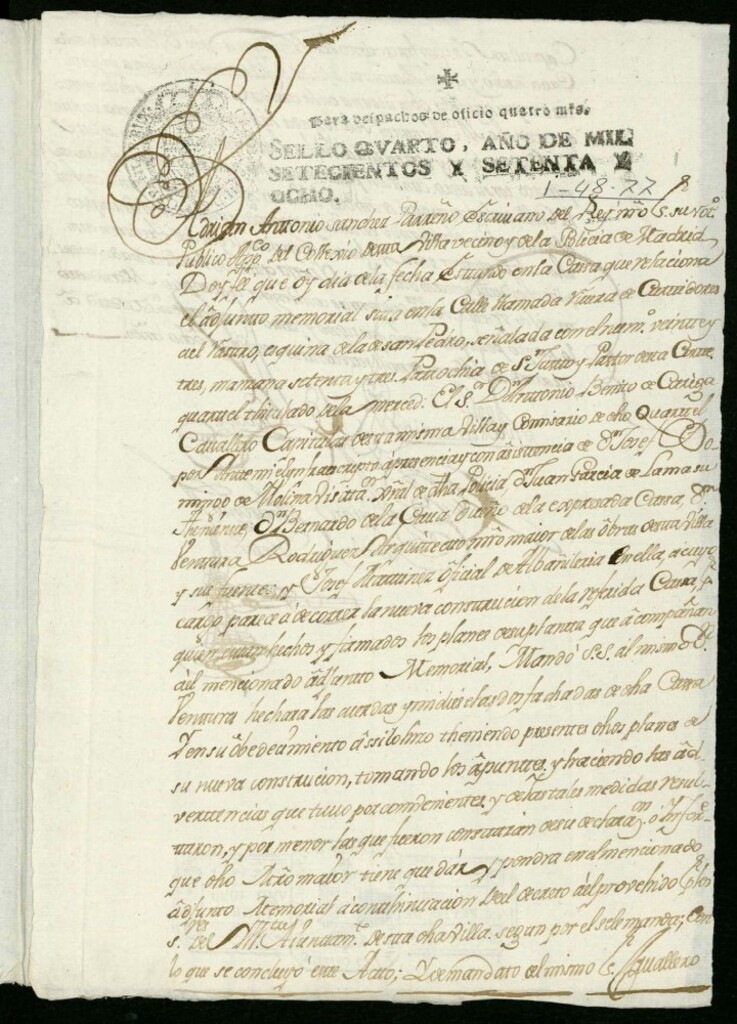 para despachos de oficio quatro mrs.
SELLO QVARTO, AÑO DE MIL
SETECIENTOS Y SETENTA Y
OCHO.
1-48-77
Adrian Antonio Sanchez Parreño Escrivano del Rey nro S. su
Publico del Colexio de esta Villa vecino y de la Policia de Madrid
Doy fee que oy dia de la fecha Estando en la Casa que relaciona
el adjunto memorial sita en la Calle llamada Cuchilleros
del Nuncio, esquina de la de San Pedro, señalada con el num.º veinte y
tres, manzana setenta y tres Parrochia de S.n Justo y Pastor de esta Corte
quartel titulado de la merced. El S.r D.n Antonio Benito de Cariga
Cavallero Capitular de esta misma Villa y Comisario de dho Quartel
por Ante mi el ynfraescripto a presencia y con asistencia de D.n Josef Do-
mingo de Molina Visitador xñal de dha Policia, D.n Juan Garcia de Lama su
theniente, D.n Bernardo de la Cava dueño de la expresada Casa, D.n
Ventura Rodriguez Arquitecto mro maior de las obras de esta Villa
y sus fuentes, y Josef Martinez oficial de Albañileria en ella, a cuyo
cargo parece à de correr la nueva construcion de la referida Casa,
quien hechos y firmados los planes de su planta que acompañan
àel mencionado adjunto Memorial, Mandó S.S. al mismo D.n
Ventura hechara las cuerdas y midiese las dos fachadas de dha Casa
Y en su obedecimiento assi lo hizo theniendo presentes dhos planes de
su nueva construcion, tomando los apuntes, y haciendo las ad-
vertencias que tuvo por combenientes, y de las tales medidas resul-
taron, y por menor las que fueron constarán de su declaraz.on o Infor-
que dho Mro maior tiene que dar, y pondra en el mencionado
adjunto Memorial à continuacion del decreto àel provehido p.r los
S.res del M. Ayuntam.to de esta dha Villa, segun por el se le manda; con
lo que se concluyó este Acto; Y de mandato del mismo S.r Cavallero